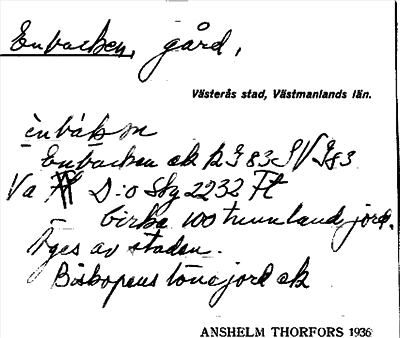 Enbacken, gård,
Västerås stad, Västmanlands län.
ènbákn
Enbacken ek
Va D:o Sky 2232 Ft
Cirka 100 tunnland jord.
Äges av staden.
Biskopens jord ek
ANSHELM THORFORS 1936